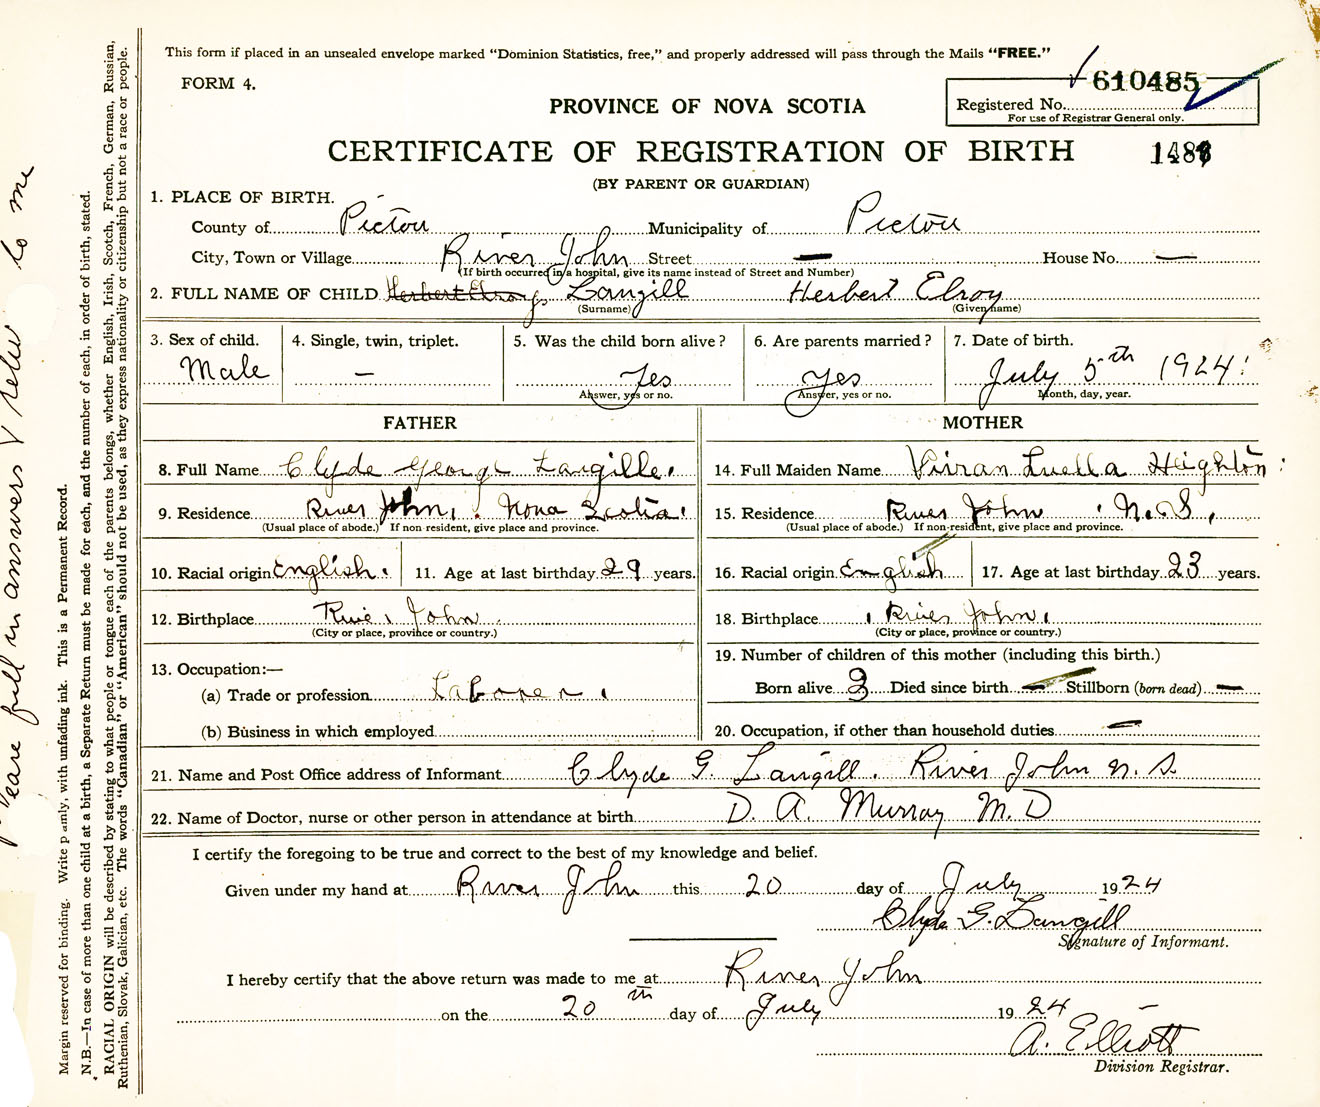 This form if placed in an unsealed envelope marked "Dominion Statistics, free," and properly addressed will pass through the Mails "FREE."
FORM 4.
610485
Registered No.
For use of Registrar General only.
PROVINCE OF NOVA SCOTIA
CERTIFICATE OF REGISTRATION OF BIRTH
(BY PARENT OR GUARDIAN)
1. PLACE OF BIRTH.
County of Pictou Municipality of Pictou
City, Town or Village River John Street — House No. —
(If birth occurred in a hospital, give its name instead of Street and Number)
2. FULL NAME OF CHILD Herbert Elroy Langill Herbert Elroy
(Surname) (Given name)
3. Sex of child. 4. Single, twin, triplet. 5. Was the child born alive? 6. Are parents married? 7. Date of birth.
Male — Yes Yes July 5th 1924
Answer, yes or no. Answer, yes or no. Month, day, year.
FATHER MOTHER
8. Full Name Clyde George Langille. 14. Full Maiden Name Vivian Luella Heighton
9. Residence River John, Nova Scotia. 15. Residence River John N.S.
(Usual place of abode.) If non resident, give place and province. (Usual place of abode.) If non-resident, give place and province.
10. Racial origin English. 11. Age at last birthday 29 years. 16. Racial origin English 17. Age at last birthday 23 years.
12. Birthplace River John 18. Birthplace River John
(City or place, province or country.) (City or place, province or country.)
13. Occupation:— 19. Number of children of this mother (including this birth.)
(a) Trade or profession Laborer Born alive 3 Died since birth — Stillborn (born dead) —
(b) Business in which employed 20. Occupation, if other than household duties —
21. Name and Post Office address of Informant Clyde G. Langill. River John N.S.
22. Name of Doctor, nurse or other person in attendance at birth D. A. Murray M.D
I certify the foregoing to be true and correct to the best of my knowledge and belief.
Given under my hand at River John this 20 day of July 1924
Clyde G. Langill
Signature of Informant.
I hereby certify that the above return was made to me at River John
on the 20th day of July 1924
A. Elliott
Division Registrar.
Please fill in answers & return to me
Margin reserved for binding. Write plainly, with unfading ink. This is a Permanent Record.
N.B.—In case of more than one child at a birth, a Separate Return must be made for each, and the number of each, in order of birth, stated.
RACIAL ORIGIN will be described by stating to what people or tongue each of the parents belongs, whether English, Irish, Scotch, French, German, Russian,
Ruthenian, Slovak, Galician, etc. The words "Canadian" or "American" should not be used, as they express nationality or citizenship but not a race or people.